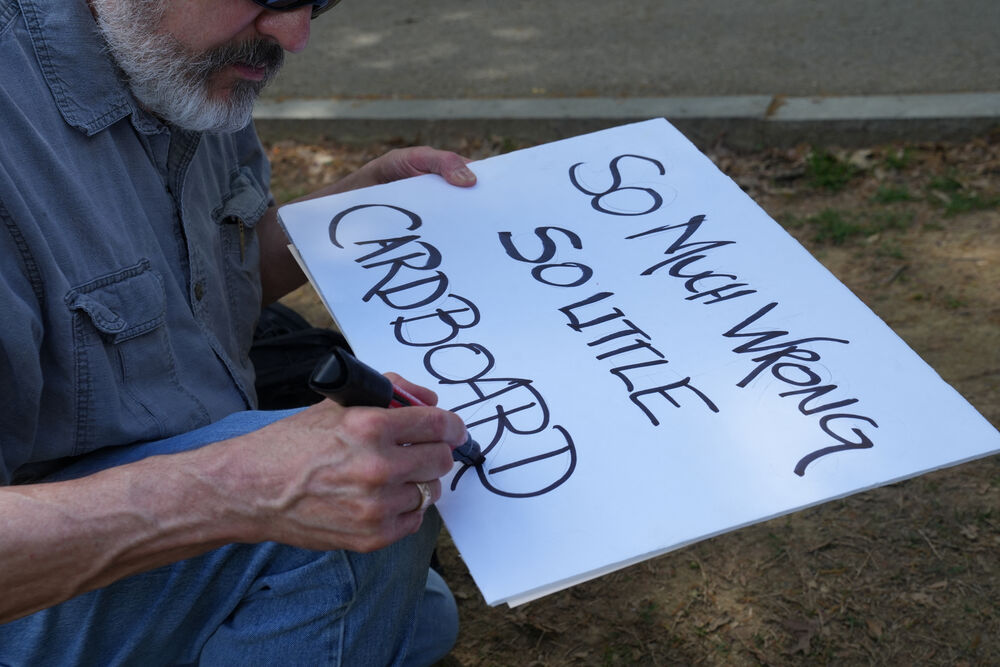 SO MUCH WRONG
SO LITTLE
CARDBOARD